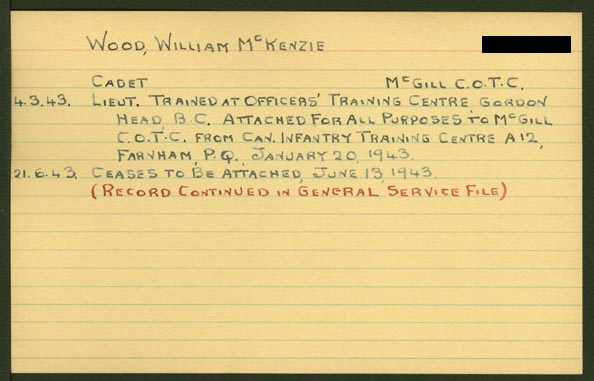 WOOD, WILLIAM McKENZIE
CADET McGILL C.O.T.C.
4.3.43. LIEUT. TRAINED AT OFFICERS' TRAINING CENTRE, GORDON
HEAD, B.C. ATTACHED FOR ALL PURPOSES TO McGILL
C.O.T.C. FROM CAN. INFANTRY TRAINING CENTRE A12,
FARNHAM, P.Q. JANUARY 20, 1943.
21.6.43. CEASES TO BE ATTACHED, JUNE 13, 1943.
(RECORD CONTINUED IN GENERAL SERVICE FILE)